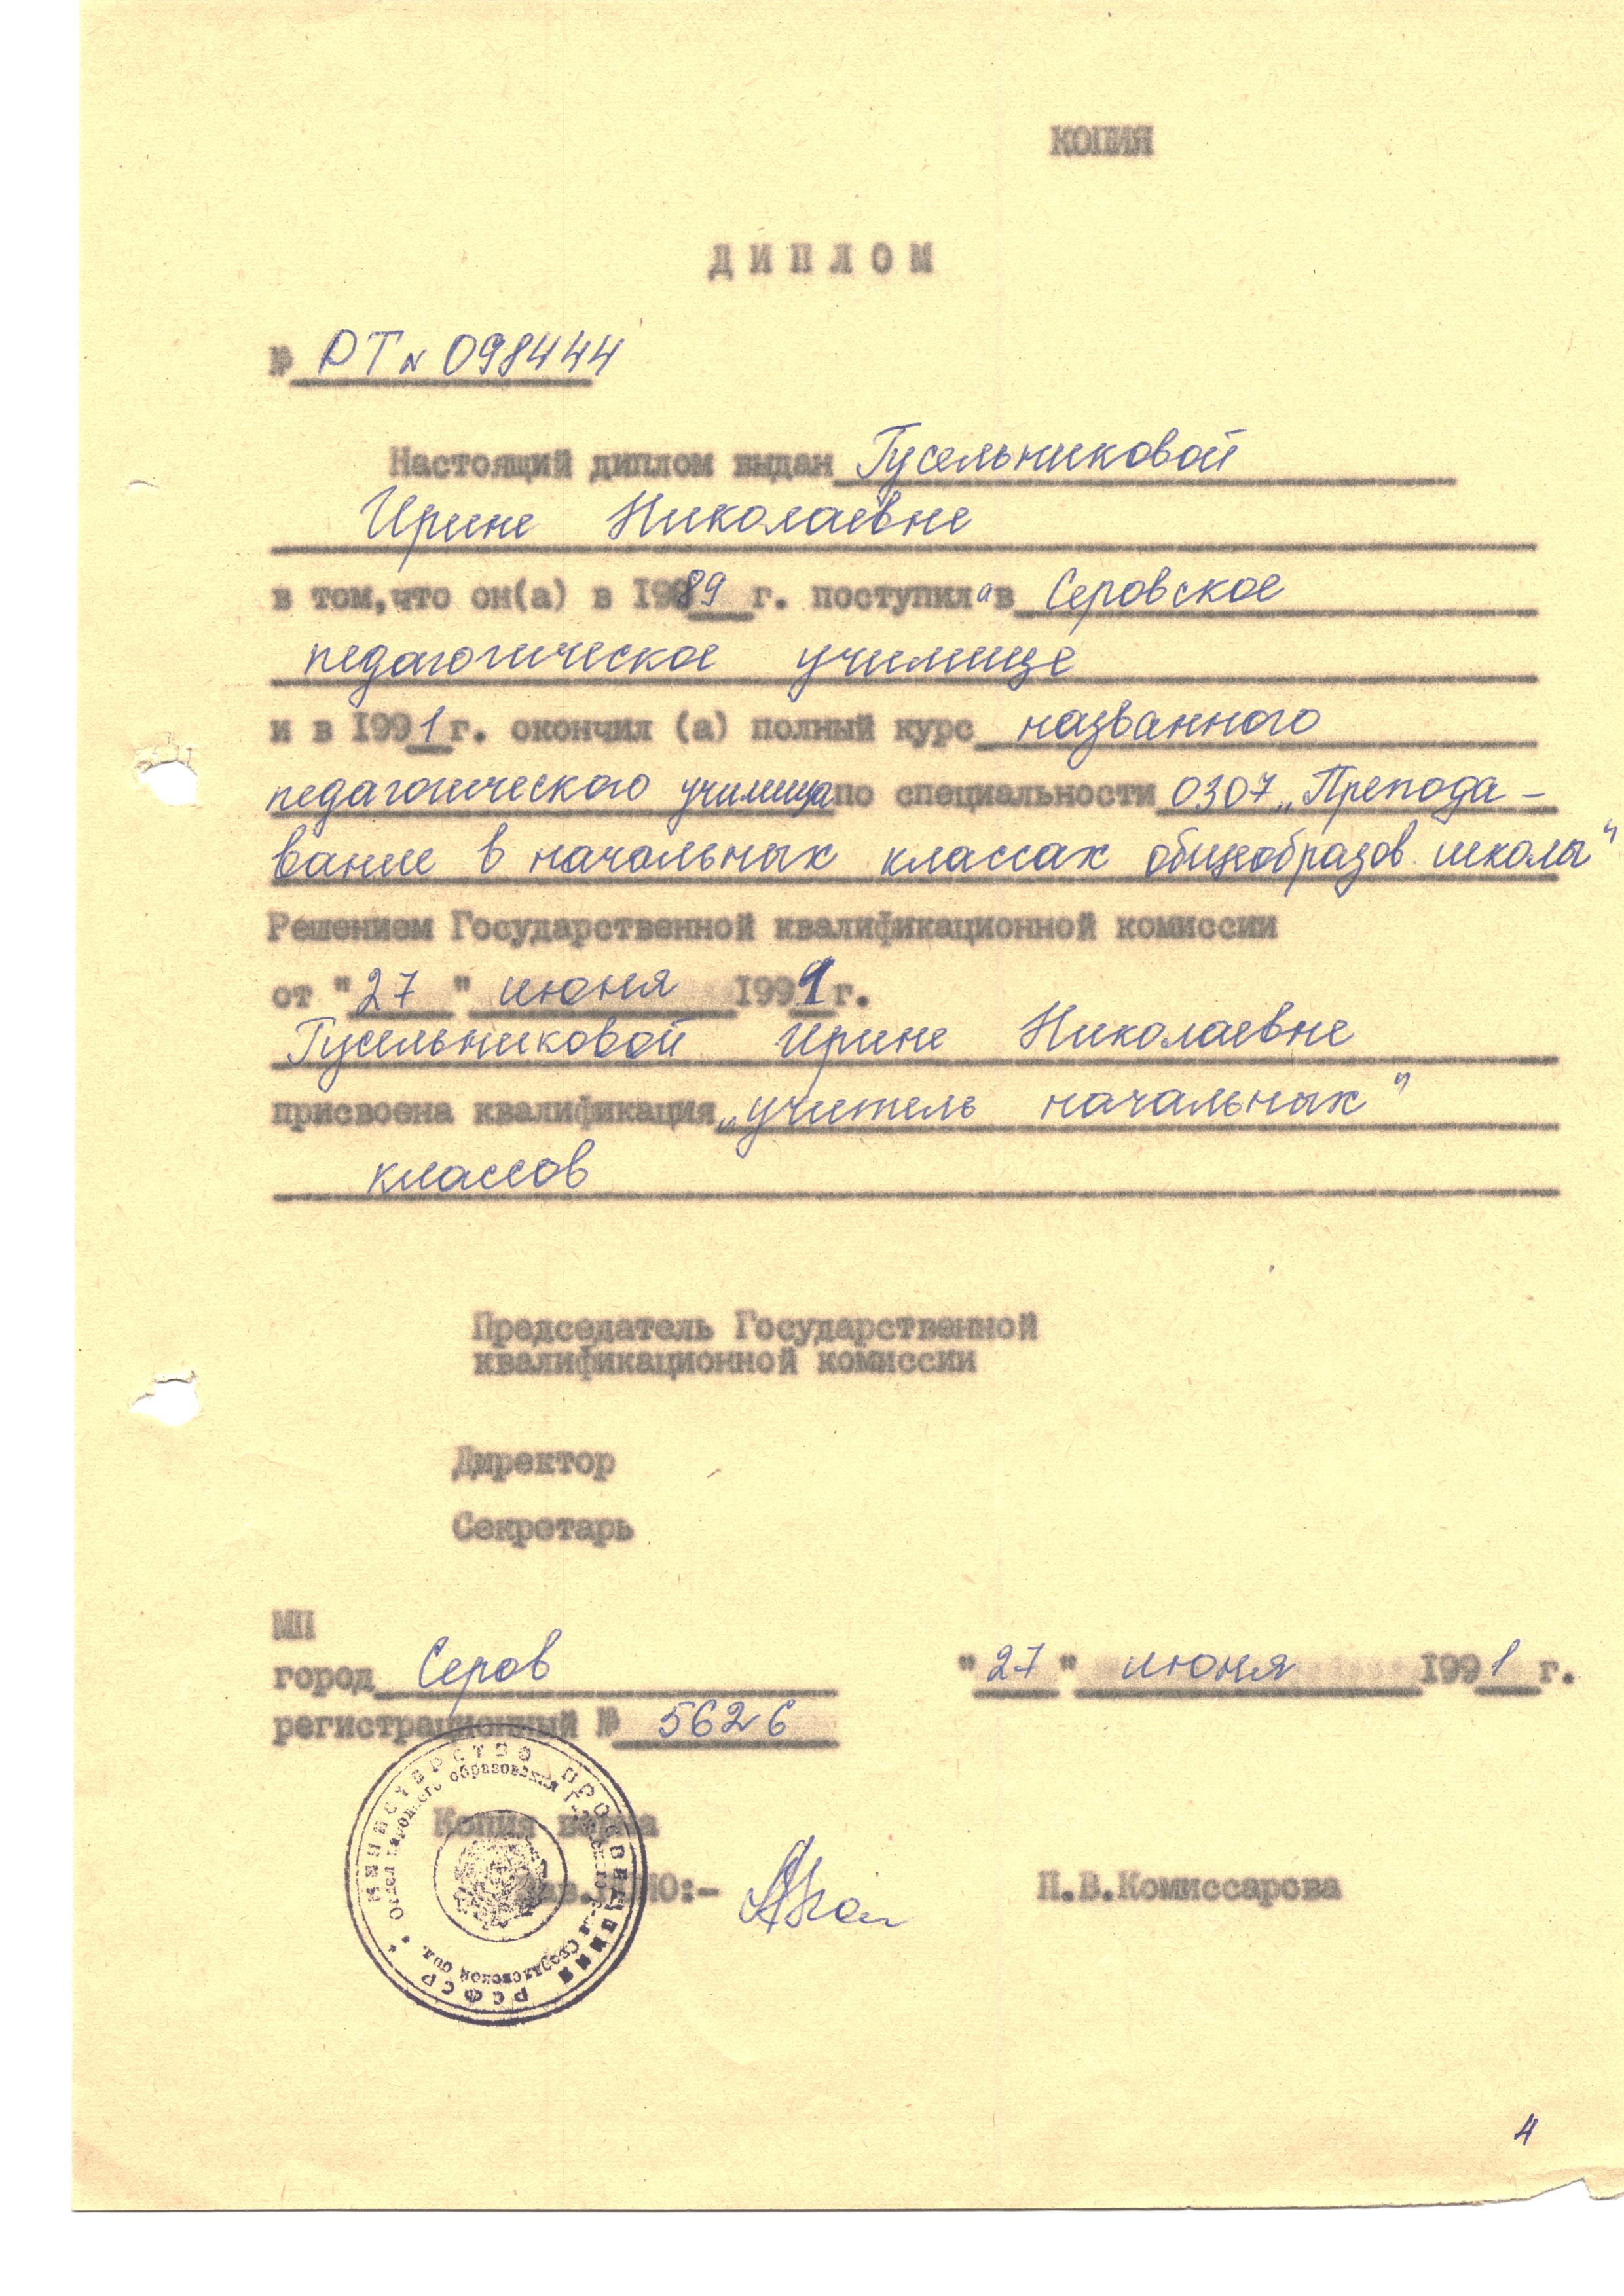 КОПИЯ
ДИПЛОМ
№ РТ № 098444
Настоящий диплом выдан Гусельниковой
Ирине Николаевне
в том,что он(а) в 1989 г. поступила в Серовское
педагогическое училище
и в 1991 г. окончил (а) полный курс названного
педагогического училища по специальности 0307 „Препода-
вание в начальных классах общеобразов. школы"
Решением Государственной квалификационной комиссии
от "27" июня 1991 г.
Гусельниковой Ирине Николаевне
присвоена квалификация „учитель начальных"
классов
Председатель Государственной
квалификационной комиссии
Директор
Секретарь
МП
город Серов "27" июня 1991 г.
регистрационный № 5626
МИНИСТЕРСТВО ПРОСВЕЩЕНИЯ РСФСР
Отдел народного образования Свердловской обл.
Копия верна
П.В.Комиссарова
4